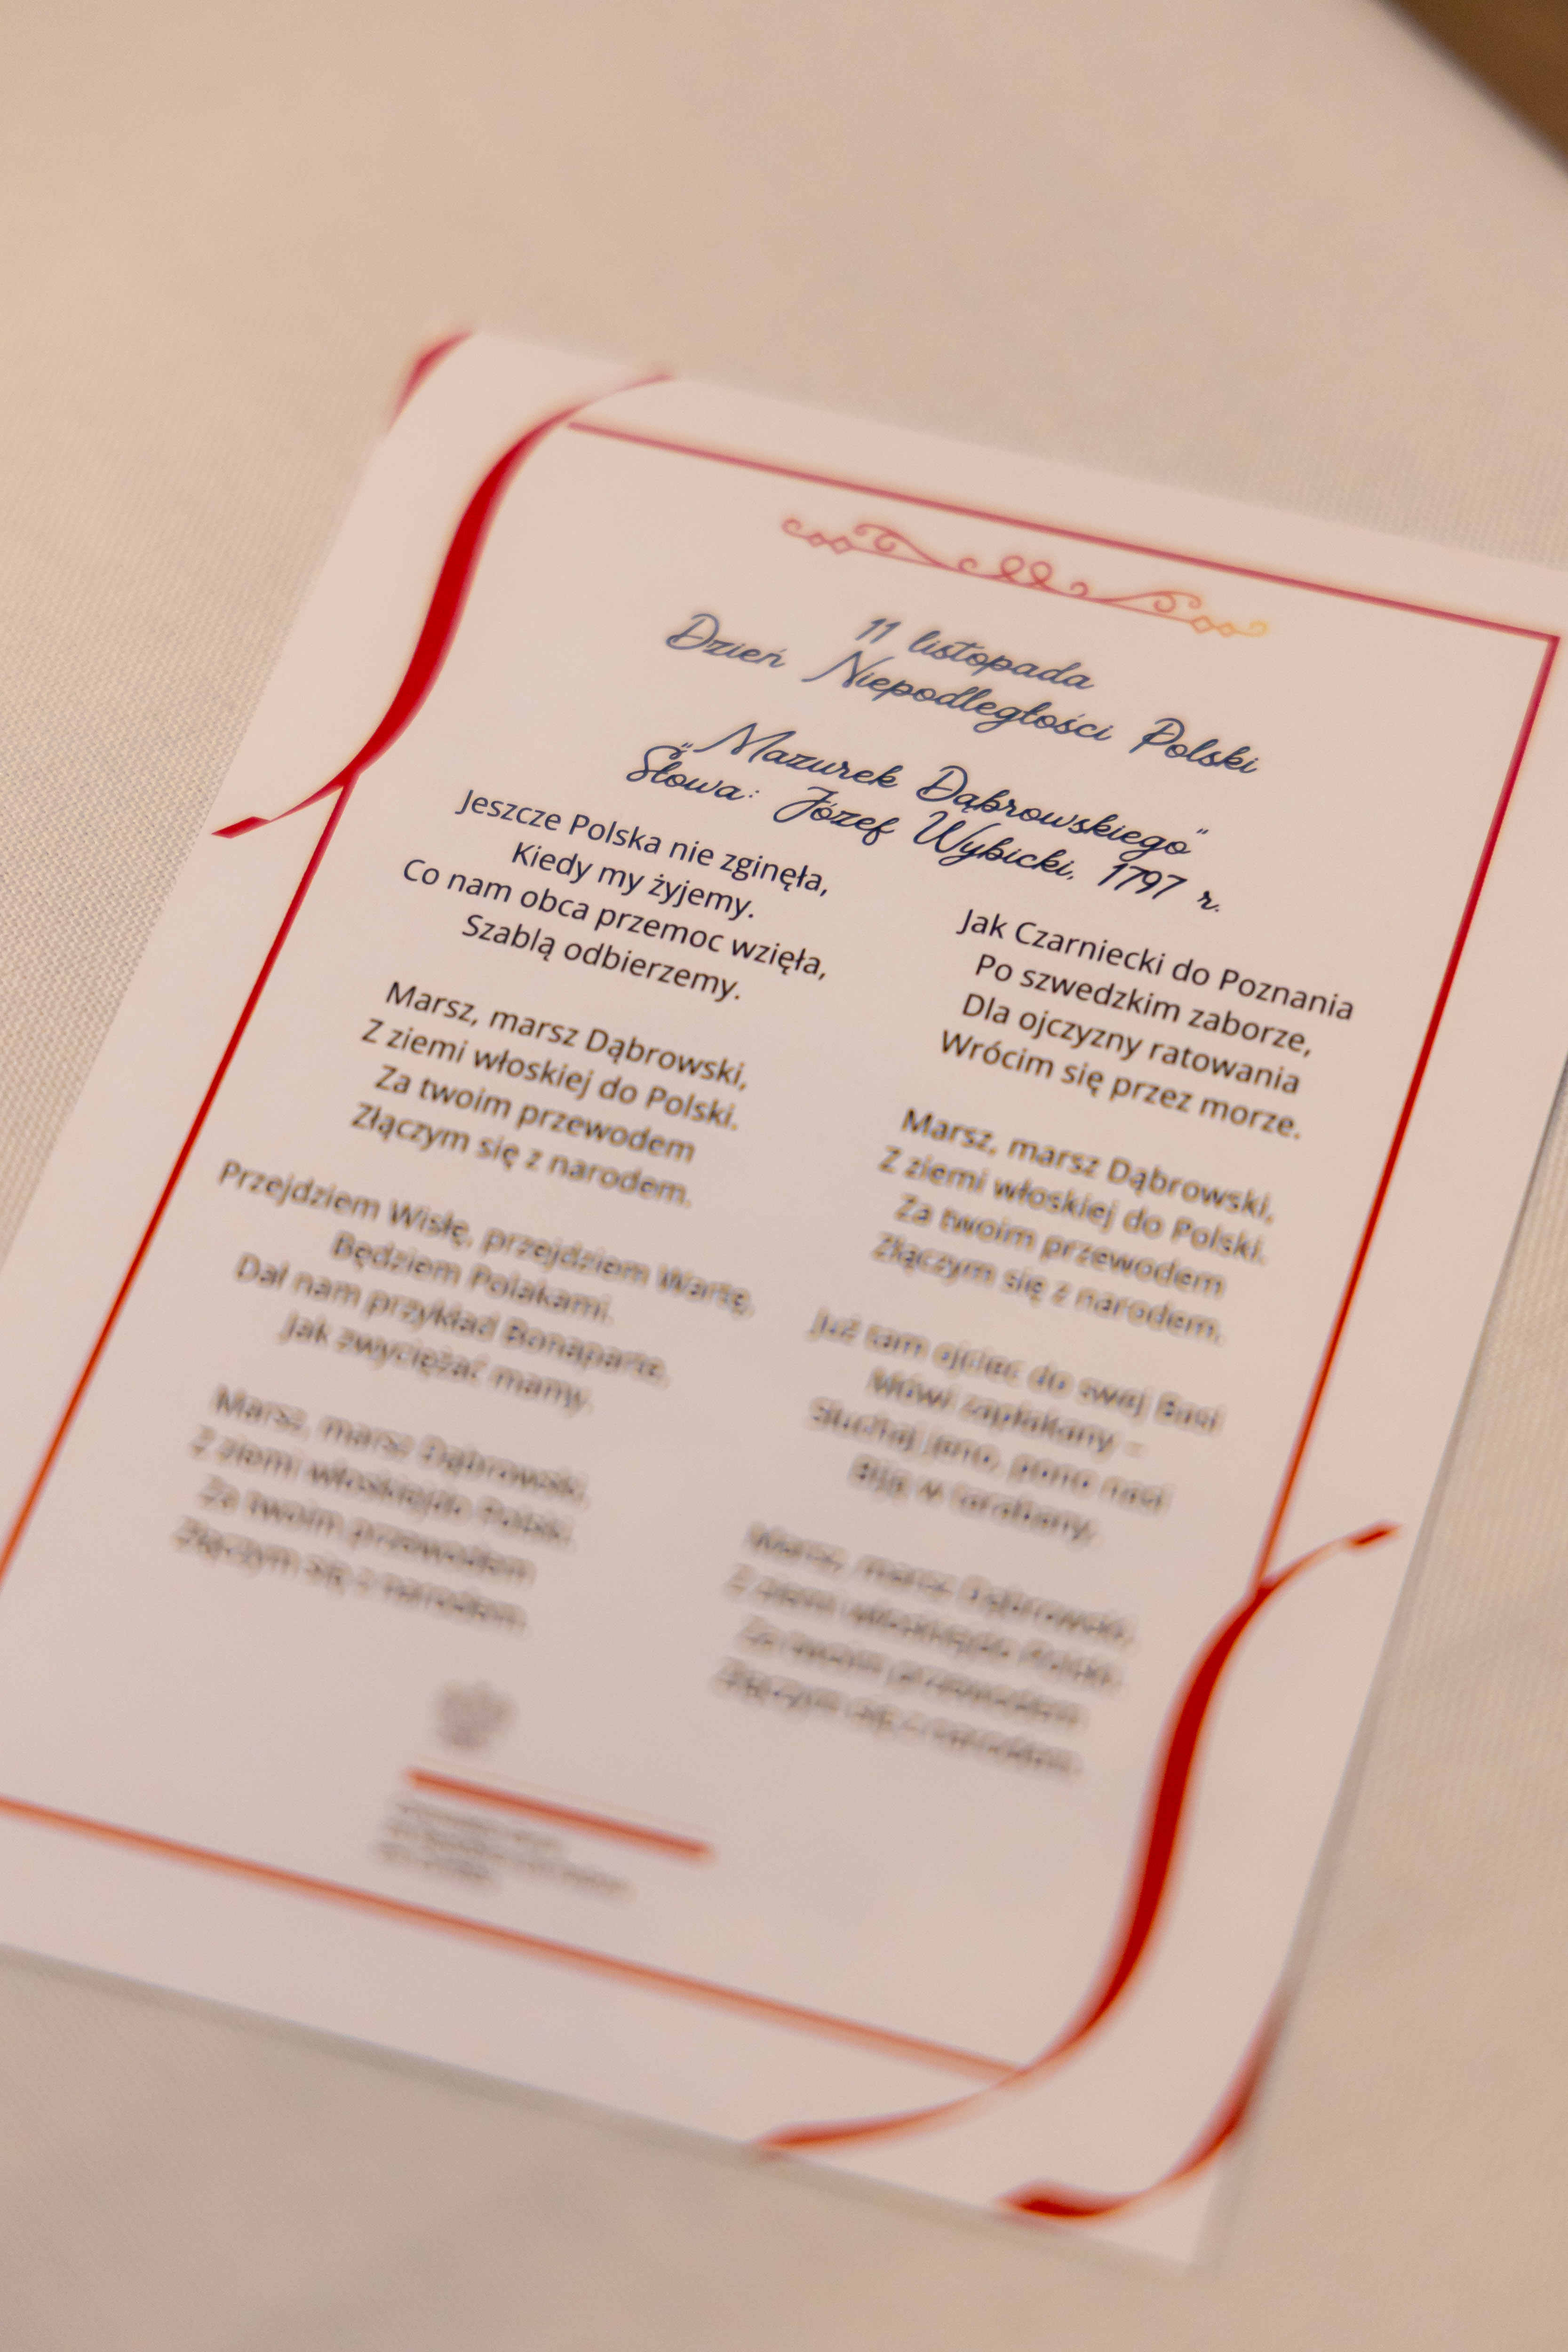 11 listopada
Dzień Niepodległości Polski
„Mazurek Dąbrowskiego"
Słowa: Józef Wybicki, 1797 r.
Jeszcze Polska nie zginęła,
Kiedy my żyjemy.
Co nam obca przemoc wzięła,
Szablą odbierzemy.
Marsz, marsz Dąbrowski,
Z ziemi włoskiej do Polski.
Za twoim przewodem
Złączym się z narodem.
Przejdziem Wisłę, przejdziem Wartę,
Będziem Polakami.
Dał nam przykład Bonaparte,
Jak zwyciężać mamy.
Marsz, marsz Dąbrowski,
Z ziemi włoskiej do Polski.
Za twoim przewodem
Złączym się z narodem.
Jak Czarniecki do Poznania
Po szwedzkim zaborze,
Dla ojczyzny ratowania
Wrócim się przez morze.
Marsz, marsz Dąbrowski,
Z ziemi włoskiej do Polski.
Za twoim przewodem
Złączym się z narodem.
Już tam ojciec do swej Basi
Mówi zapłakany –
Słuchaj jeno, pono nasi
Biją w tarabany.
Marsz, marsz Dąbrowski,
Z ziemi włoskiej do Polski.
Za twoim przewodem
Złączym się z narodem.